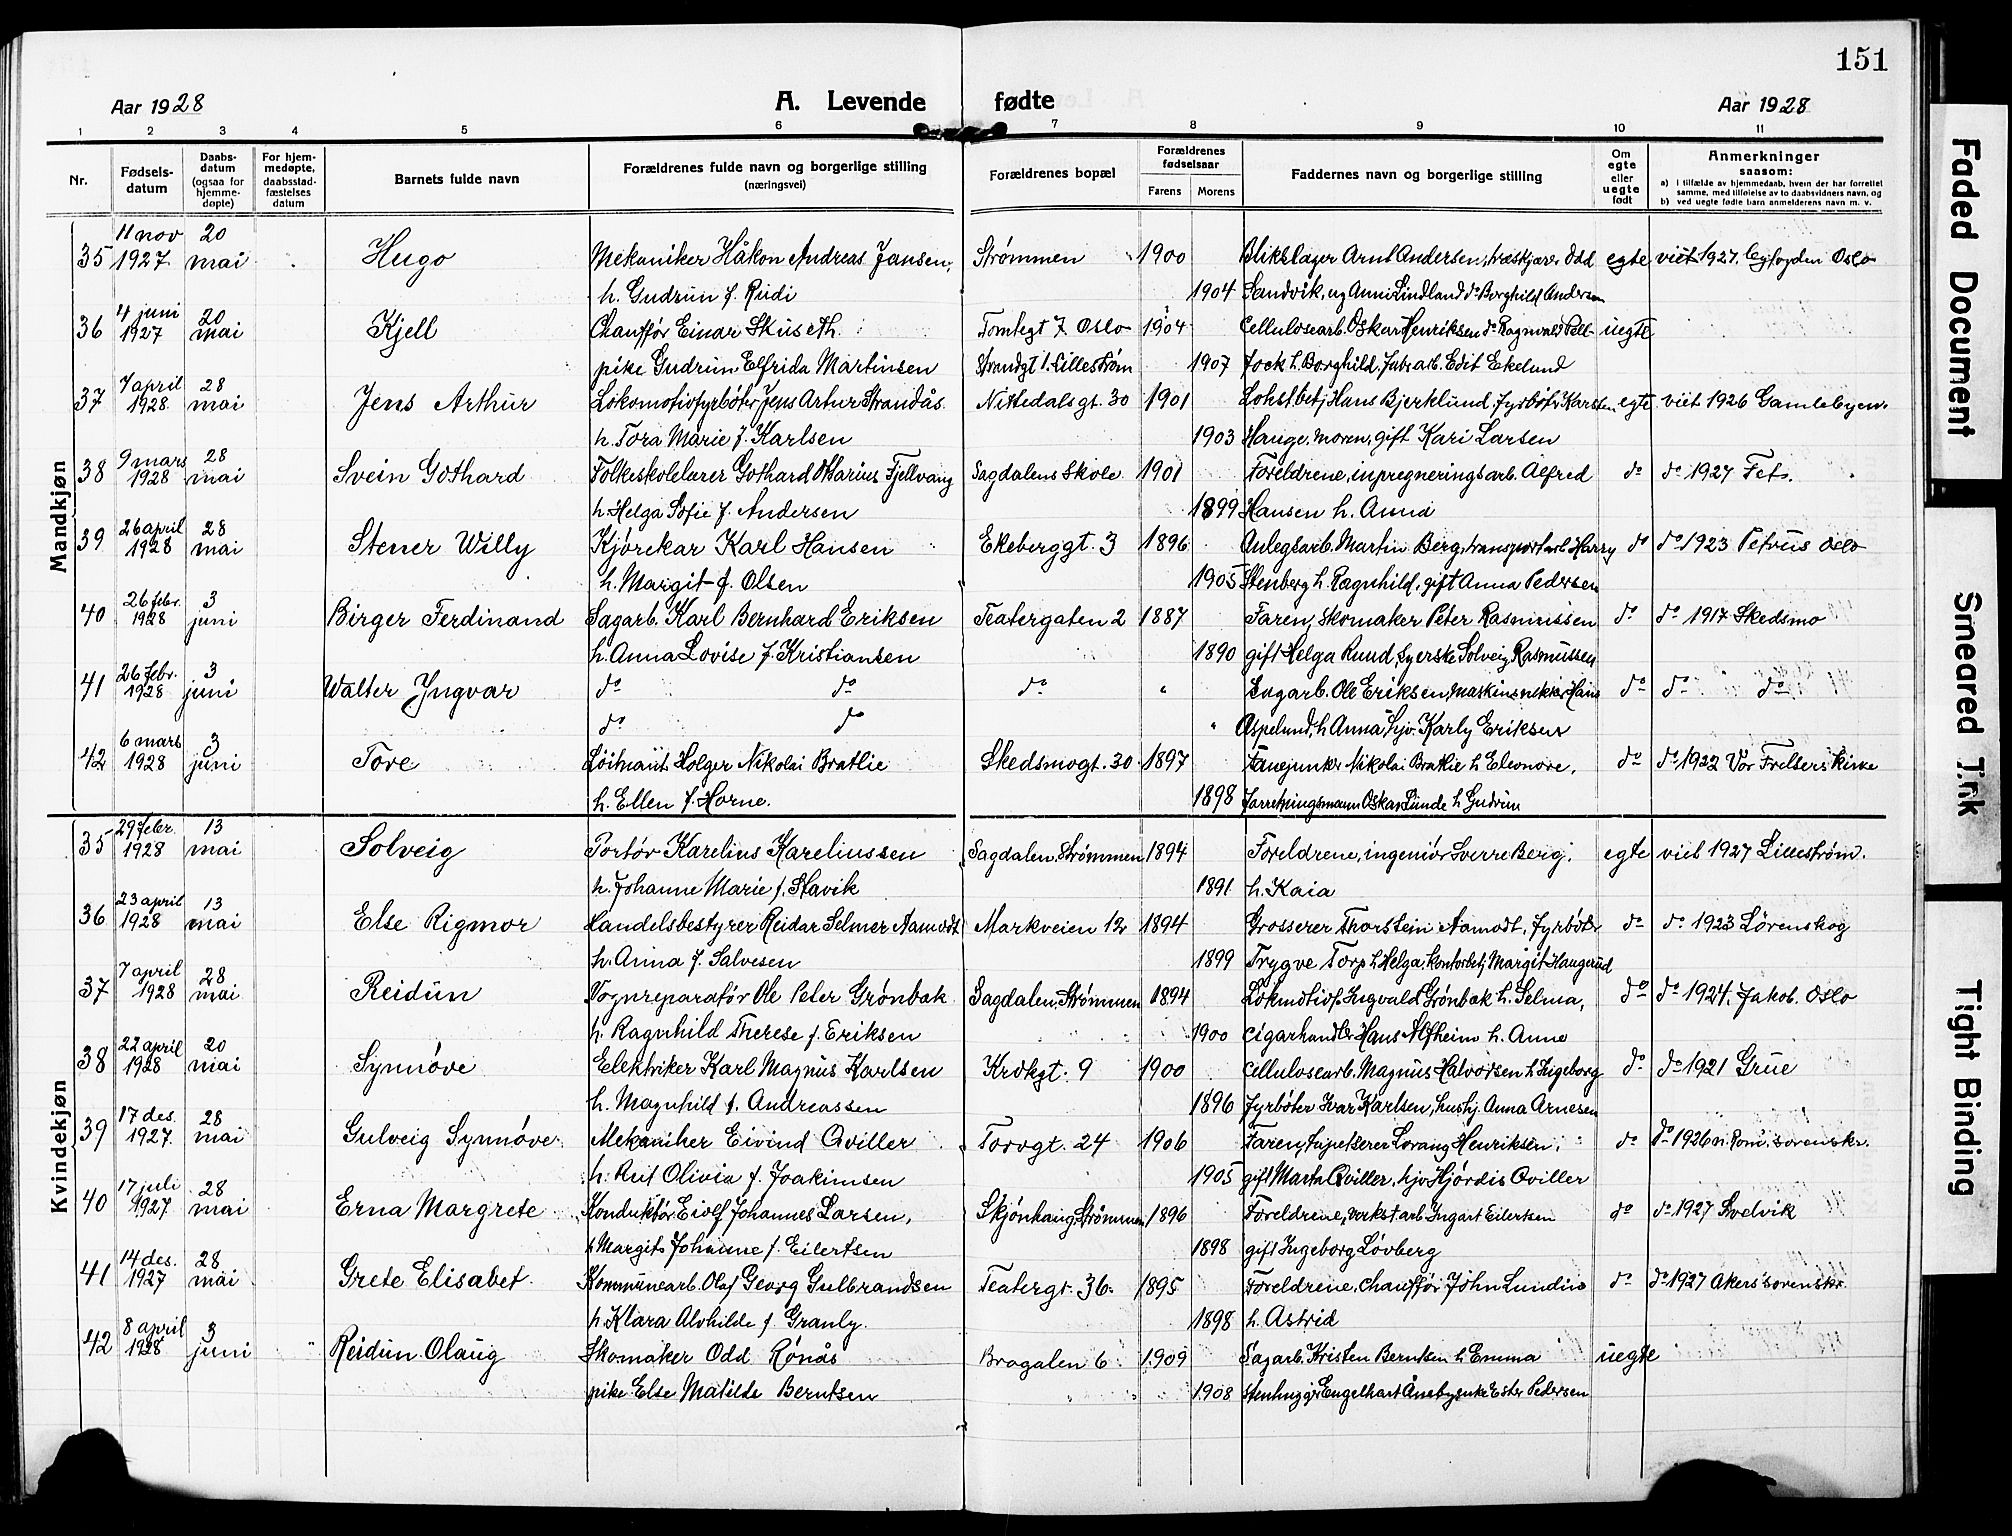 151
Aar 1928 A. Levende fødte Aar 1928
1 2 3 4 5 6 7 8 9 10 11
Nr. Fødsels-datum Daabs-datum (ogsaa for hjemme-døpte) For hjem-medøpte, daabsstad-fæstelses datum Barnets fulde navn Forældrenes fulde navn og borgerlige stilling (næringsvei) Forældrenes bopæl Forældrenes fødselsaar Farens Morens Faddernes navn og borgerlige stilling Om egte eller uegte født Anmerkninger saasom:
a) i tilfælde av hjemmedaab, hvem der har forrettet samme, med tilføielse av to daabsvidners navn, og
b) ved uegte fødte barn anmelderens navn m. v.
Mandkjøn
35 11 nov 1927 20 mai Hugo Mekaniker Håkon Andreas Jansen, Strømmen 1900 Blikslager Arnt Andersen, Odd egte viet 1927. Byfogden Oslo
h. Gudrun f. Rudi 1904 Sandvik, ug Anni Lindland do Borghild Andersen
36 4 juni 1927 20 mai Kjell Chauffør Einar Skuseth Tomtegt 7 Oslo 1904 Cellulosearb. Oskar Henriksen do Ragnvald uegte
pike Gudrun Elfrida Martinsen Strandgt 1. Lillestrøm 1907 h. Borghild, fabr.arb. Edit Ekelund
37 7 april 1928. 28 mai Jens Arthur Lokomotivfyrbøter Jens Artur Strandås. Nittedalsgt. 30 1901 Hans Bjerklund, fyrbøt. Karsten egte viet 1926 Gamlebyen.
h. Tora Marie f. Karlsen 1903 Hauge, moren, gift Kari Larsen
38 9 mars 1928 28 mai Svein Gothard Folkeskolelærer Gothard Marius Fjellvang Sagdalens Skole 1901 Foreldrene, inpregneringsarb. Alfred do do 1927 Fet.
h. Helga Sofie f. Andersen 1899 Hansen h. Anna
39 26 april 1928 28 mai Stener Willy Kjørekar Karl Hansen Ekeberggt. 3 1896 Anlegsarb. Martin Berg, transportarb. Harry do do 1923 Petrus Oslo
h. Margit f. Olsen 1905 Stenberg h. Ragnhild, gift Anna Pedersen
40 26 febr. 1928 3 juni Birger Ferdinand Sagarb. Karl Bernhard Eriksen Teatergaten 2 1887 Faren, Skomaker Peter Rasmussen do do 1917 Skedsmo
h. Anna Lovise f. Kristiansen 1890 gift Helga Ruud, Syerske Solveig Rasmussen
41 26 febr. 1928 3 juni Walter Yngvar do do do " Sagarb. Ole Eriksen, Hans do do do
do do " Aspelund, h Anna, hjv. Karly Eriksen
42 6 mars 1928 3 juni Tore Løitnant Holger Nikolai Bratlie Skedsmogt. 30 1897 Fanejunker Nikolai Bratlie h Eleonore, do do 1922 Vor Frelsers kirke
h. Ellen f. Horne. 1898 Forretningsmann Oskar Lunde h Gudrun
Kvindekjøn
35 29 febr. 1928 13 mai Solveig Portør Karelius Kareliussen Sagdalen, Strømmen 1894 Foreldrene, ingeniør Sverre Berg, egte viet 1927 Lillestrøm.
h. Johanne Marie f. Stavik 1891 h. Kaia
36 23 april 1928 13 mai Else Rigmor Handelsbestyrer Reidar Selmer Aamodt Markveien 12 1894 Grosserer Thorstein Aamodt, fyrbøter do do 1923 Lørenskog
h. Anna f. Salvesen 1899 Trygve Torp h Helga, kontorbetj Margit Haugerud
37 7 april 1928 28 mai Reidun Vognreparatør Ole Peter Grønbæk Sagdalen, Strømmen 1894 Lokmotivf. Ingvald Grønbæk h. Selma, do do 1924. Jakob. Oslo
h. Ragnhild Therese f. Eriksen 1900 Cigarhandler Hans Alfheim h. Anne
38 22 april 1928 20 mai Synnøve Elektriker Karl Magnus Karlsen Krokgt. 9 1900 Cellulosearb. Magnus Halvorsen h Ingeborg do do 1921 Grue
h. Magnhild f. Andreassen 1896 Fyrbøter Ivar Karlsen, hushj. Anna Arnesen
39 17 des. 1927. 28 mai Gulveig Synnøve Mekaniker Eivind Qviller Torvgt. 24 1906 Faren, tapetserer Lorang Henriksen, do do 1926 n. Rom. sorenskr.
h. Rut Olivia f. Joakimsen 1905 gift Marta Qviller, hjv Hjørdis Qviller
40 17 juli 1927 28 mai Erna Margrete Konduktør Eiolf Johannes Larsen, Skjønhaug, Strømmen 1896 Foreldrene, verkst.arb. Ingart Eilertsen do do 1927 Svelvik
h Margit Johanne f. Eilertsen 1898 gift Ingeborg Løvberg
41 14 des. 1927 28 mai Grete Elisabet Kommunearb. Olaf Georg Gulbrandsen Teatergt. 36. 1895 Foreldrene, Chauffør John Lundin do do 1927 Akers sorenskr.
h. Klara Alvhilde f. Granly. 1898 h. Astrid
42 8 april 1928 3 juni Reidun Olaug Skomaker Odd Rønås Brogaten 6 1909 Sagarb. Kristen Berntsen h Emma uegte
pike Else Matilde Berntsen 1908 Stenhugger Engelhart Åneby, Ester Pedersen
Faded Document
Smeared Ink
Tight Binding